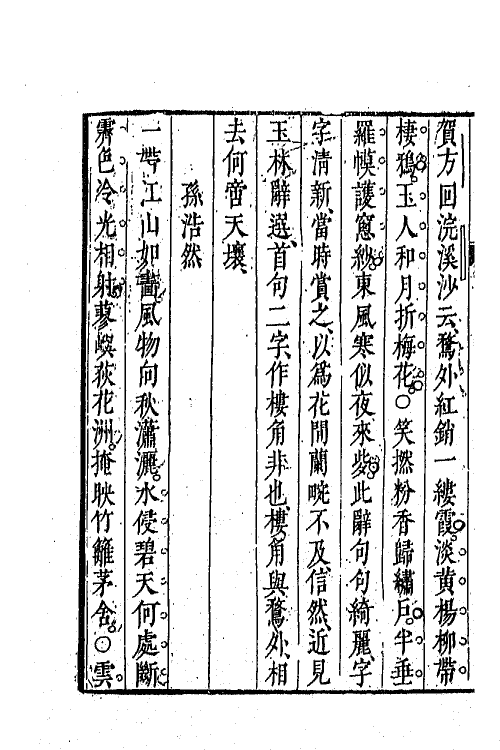 賀方回浣溪沙云鶩外紅銷一縷霞淡黃楊柳帶
棲鴉玉人和月折梅花○笑撚粉香歸繡戶半垂
羅幙護窻紗東風寒似夜來些此辭句句綺麗字
字清新當時賞之以爲花間蘭畹不及信然近見
玉林辭選首句二字作樓角非也樓角與鶩外相
去何啻天壤
孫浩然
一帶江山如畵風物向秋瀟灑水侵碧天何處斷
霽色冷光相射蓼嶼荻花洲掩映竹籬茅舍○雲